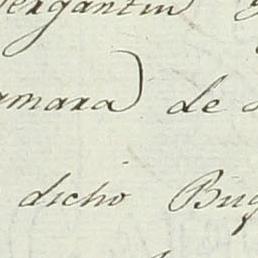 ergantin
amara) de
dicho Bug